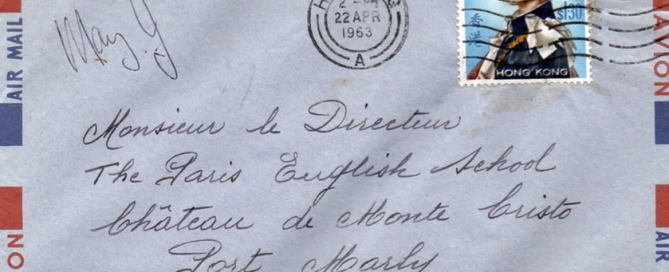 AIR MAIL
May 9
22 APR
1963
A
$1.30
香港
HONG KONG
AVION
Monsieur le Directeur
The Paris English School
Château de Monte Cristo
Port Marly
ON
AIR